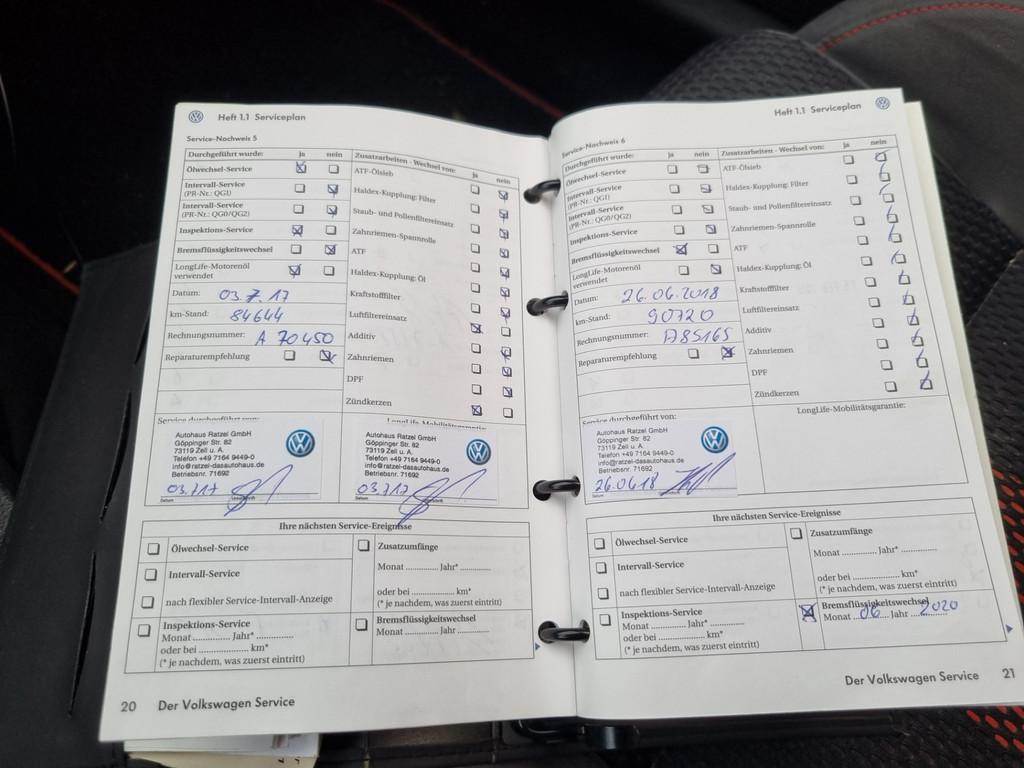 Heft 1.1 Serviceplan
Service-Nachweis 5
Durchgeführt wurde: ja nein
Ölwechsel-Service
Intervall-Service
(PR-Nr.: QGI)
Intervall-Service
(PR-Nr.: QG0/QG2)
Inspektions-Service
Bremsflüssigkeitswechsel
LongLife-Motorenöl
verwendet
Datum: 03.7.17
km-Stand: 84644
Rechnungsnummer: A 70450
Reparaturempfehlung
Zusatzarbeiten - Wechsel von: ja nein
ATF-Ölsieb
Haldex-Kupplung: Filter
Staub- und Pollenfiltereinsatz
Zahnriemen-Spannrolle
ATF
Haldex-Kupplung: Öl
Kraftstofffilter
Luftfiltereinsatz
Additiv
Zahnriemen
DPF
Zündkerzen
Service durchgeführt von:
Autohaus Ratzel GmbH
Göppinger Str. 82
73119 Zell u. A.
Telefon +49 7164 9449-0
info@ratzel-dasautohaus.de
Betriebsnr. 71692
03.7.17
Datum
LongLife-Mobilitätsgarantie:
Autohaus Ratzel GmbH
Göppinger Str. 82
73119 Zell u. A.
Telefon +49 7164 9449-0
info@ratzel-dasautohaus.de
Betriebsnr. 71692
03.7.17
Datum
Ihre nächsten Service-Ereignisse
Ölwechsel-Service
Intervall-Service
nach flexibler Service-Intervall-Anzeige
Inspektions-Service
Monat ............. Jahr* .............
oder bei .................... km*
(* je nachdem, was zuerst eintritt)
Zusatzumfänge
Monat ............ Jahr* .............
oder bei .................... km*
(* je nachdem, was zuerst eintritt)
Bremsflüssigkeitswechsel
Monat ............ Jahr .............
20 Der Volkswagen Service
Heft 1.1 Serviceplan
Service-Nachweis 6
Durchgeführt wurde: ja nein
Ölwechsel-Service
Intervall-Service
(PR-Nr.: QGI)
Intervall-Service
(PR-Nr.: QG0/QG2)
Inspektions-Service
Bremsflüssigkeitswechsel
LongLife-Motorenöl
verwendet
Datum: 26.06.2018
km-Stand: 90720
Rechnungsnummer: A85165
Reparaturempfehlung
Zusatzarbeiten - Wechsel von: ja nein
ATF-Ölsieb
Haldex-Kupplung: Filter
Staub- und Pollenfiltereinsatz
Zahnriemen-Spannrolle
ATF
Haldex-Kupplung: Öl
Kraftstofffilter
Luftfiltereinsatz
Additiv
Zahnriemen
DPF
Zündkerzen
Service durchgeführt von:
Autohaus Ratzel GmbH
Göppinger Str. 82
73119 Zell u. A.
Telefon +49 7164 9449-0
info@ratzel-dasautohaus.de
Betriebsnr. 71692
26.06.18
Datum
LongLife-Mobilitätsgarantie:
Ihre nächsten Service-Ereignisse
Ölwechsel-Service
Intervall-Service
nach flexibler Service-Intervall-Anzeige
Inspektions-Service
Monat ............. Jahr* .............
oder bei .................... km*
(* je nachdem, was zuerst eintritt)
Zusatzumfänge
Monat ............ Jahr* .............
oder bei .................... km*
(* je nachdem, was zuerst eintritt)
Bremsflüssigkeitswechsel
Monat 06 Jahr 2020
Der Volkswagen Service 21